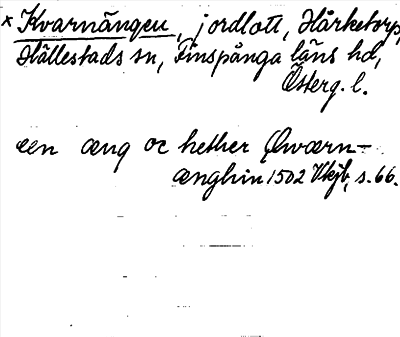 × Kvarnängen, jordlott, Hårketorp,
Hällestads sn, Finspånga läns hd,
Österg. l.
een æng oc hether Qwærn-
ænghin 1502 Vkjb, s. 66.